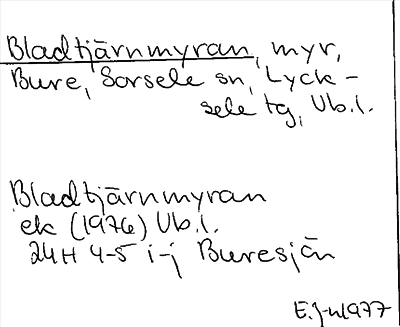 Bladtjärnmyran, myr,
Bure, Sorsele sn, Lyck-
sele tg, Vb.l.
Bladtjärnmyran
ek (1976) Vb.l.
24H 4-5 i-j Buresjön
E.J-n 1977